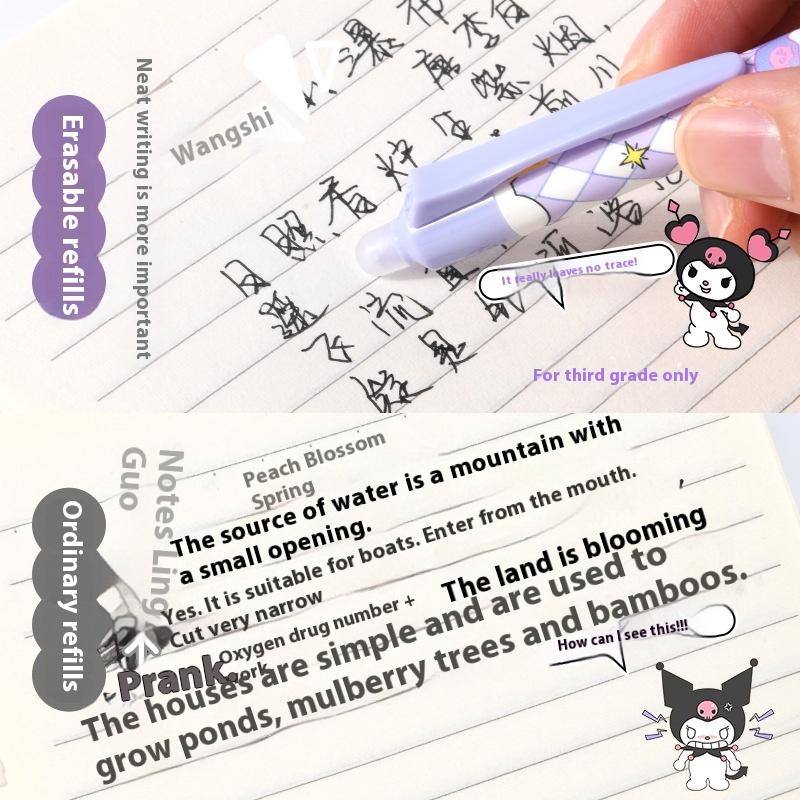 Erasable refills
Neat writing is more important
Wangshi
瀑布
唐 李白
日照香炉生紫烟,
遥 前川
飞流
疑是 河落
It really leaves no trace!
For third grade only
Ordinary refills
Notes Ling
Guo
Peach Blossom
Spring
The source of water is a mountain with
a small opening.
Yes. It is suitable for boats. Enter from the mouth.
Cut very narrow
The land is blooming
Oxygen drug number +
work
Prank.
The houses are simple and are used to
grow ponds, mulberry trees and bamboos.
How can I see this!!!